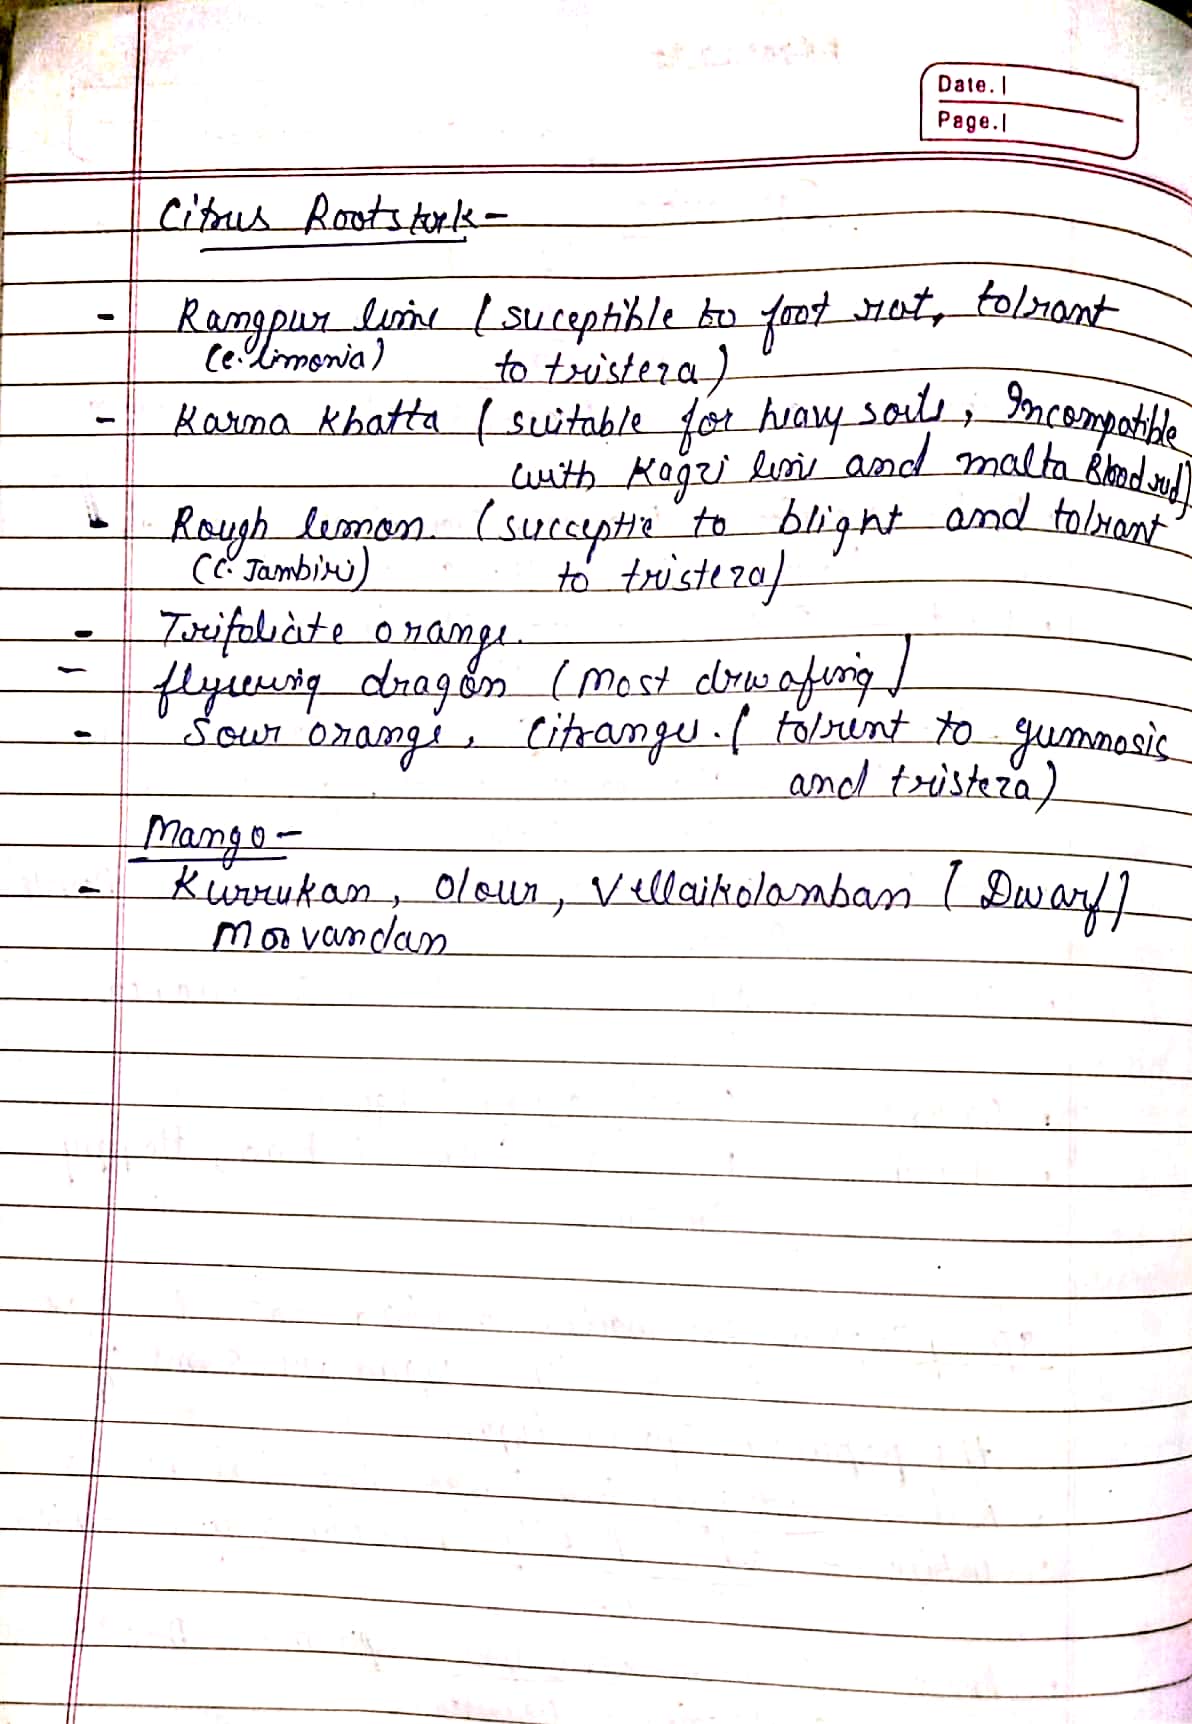 Date.
Page.
Citrus Rootstock-
- Rangpur lime (suceptible to foot rot, tolrant
(C. limonia) to tristeza)
- Karna Khatta (suitable for heavy soils, Incompatible
with Kagzi lime and malta Blood red)
- Rough lemon. (succeptie to blight and tolrant
(C. Jambiri) to tristeza)
- Trifoliate orange.
- flyeing dragon (most drwafing)
- Sour orange, Citrange. (tolrent to gumnosis
and tristeza)
Mango-
- Kurrukan, Olour, Vellaikolamban [Dwarf]
Moovandan